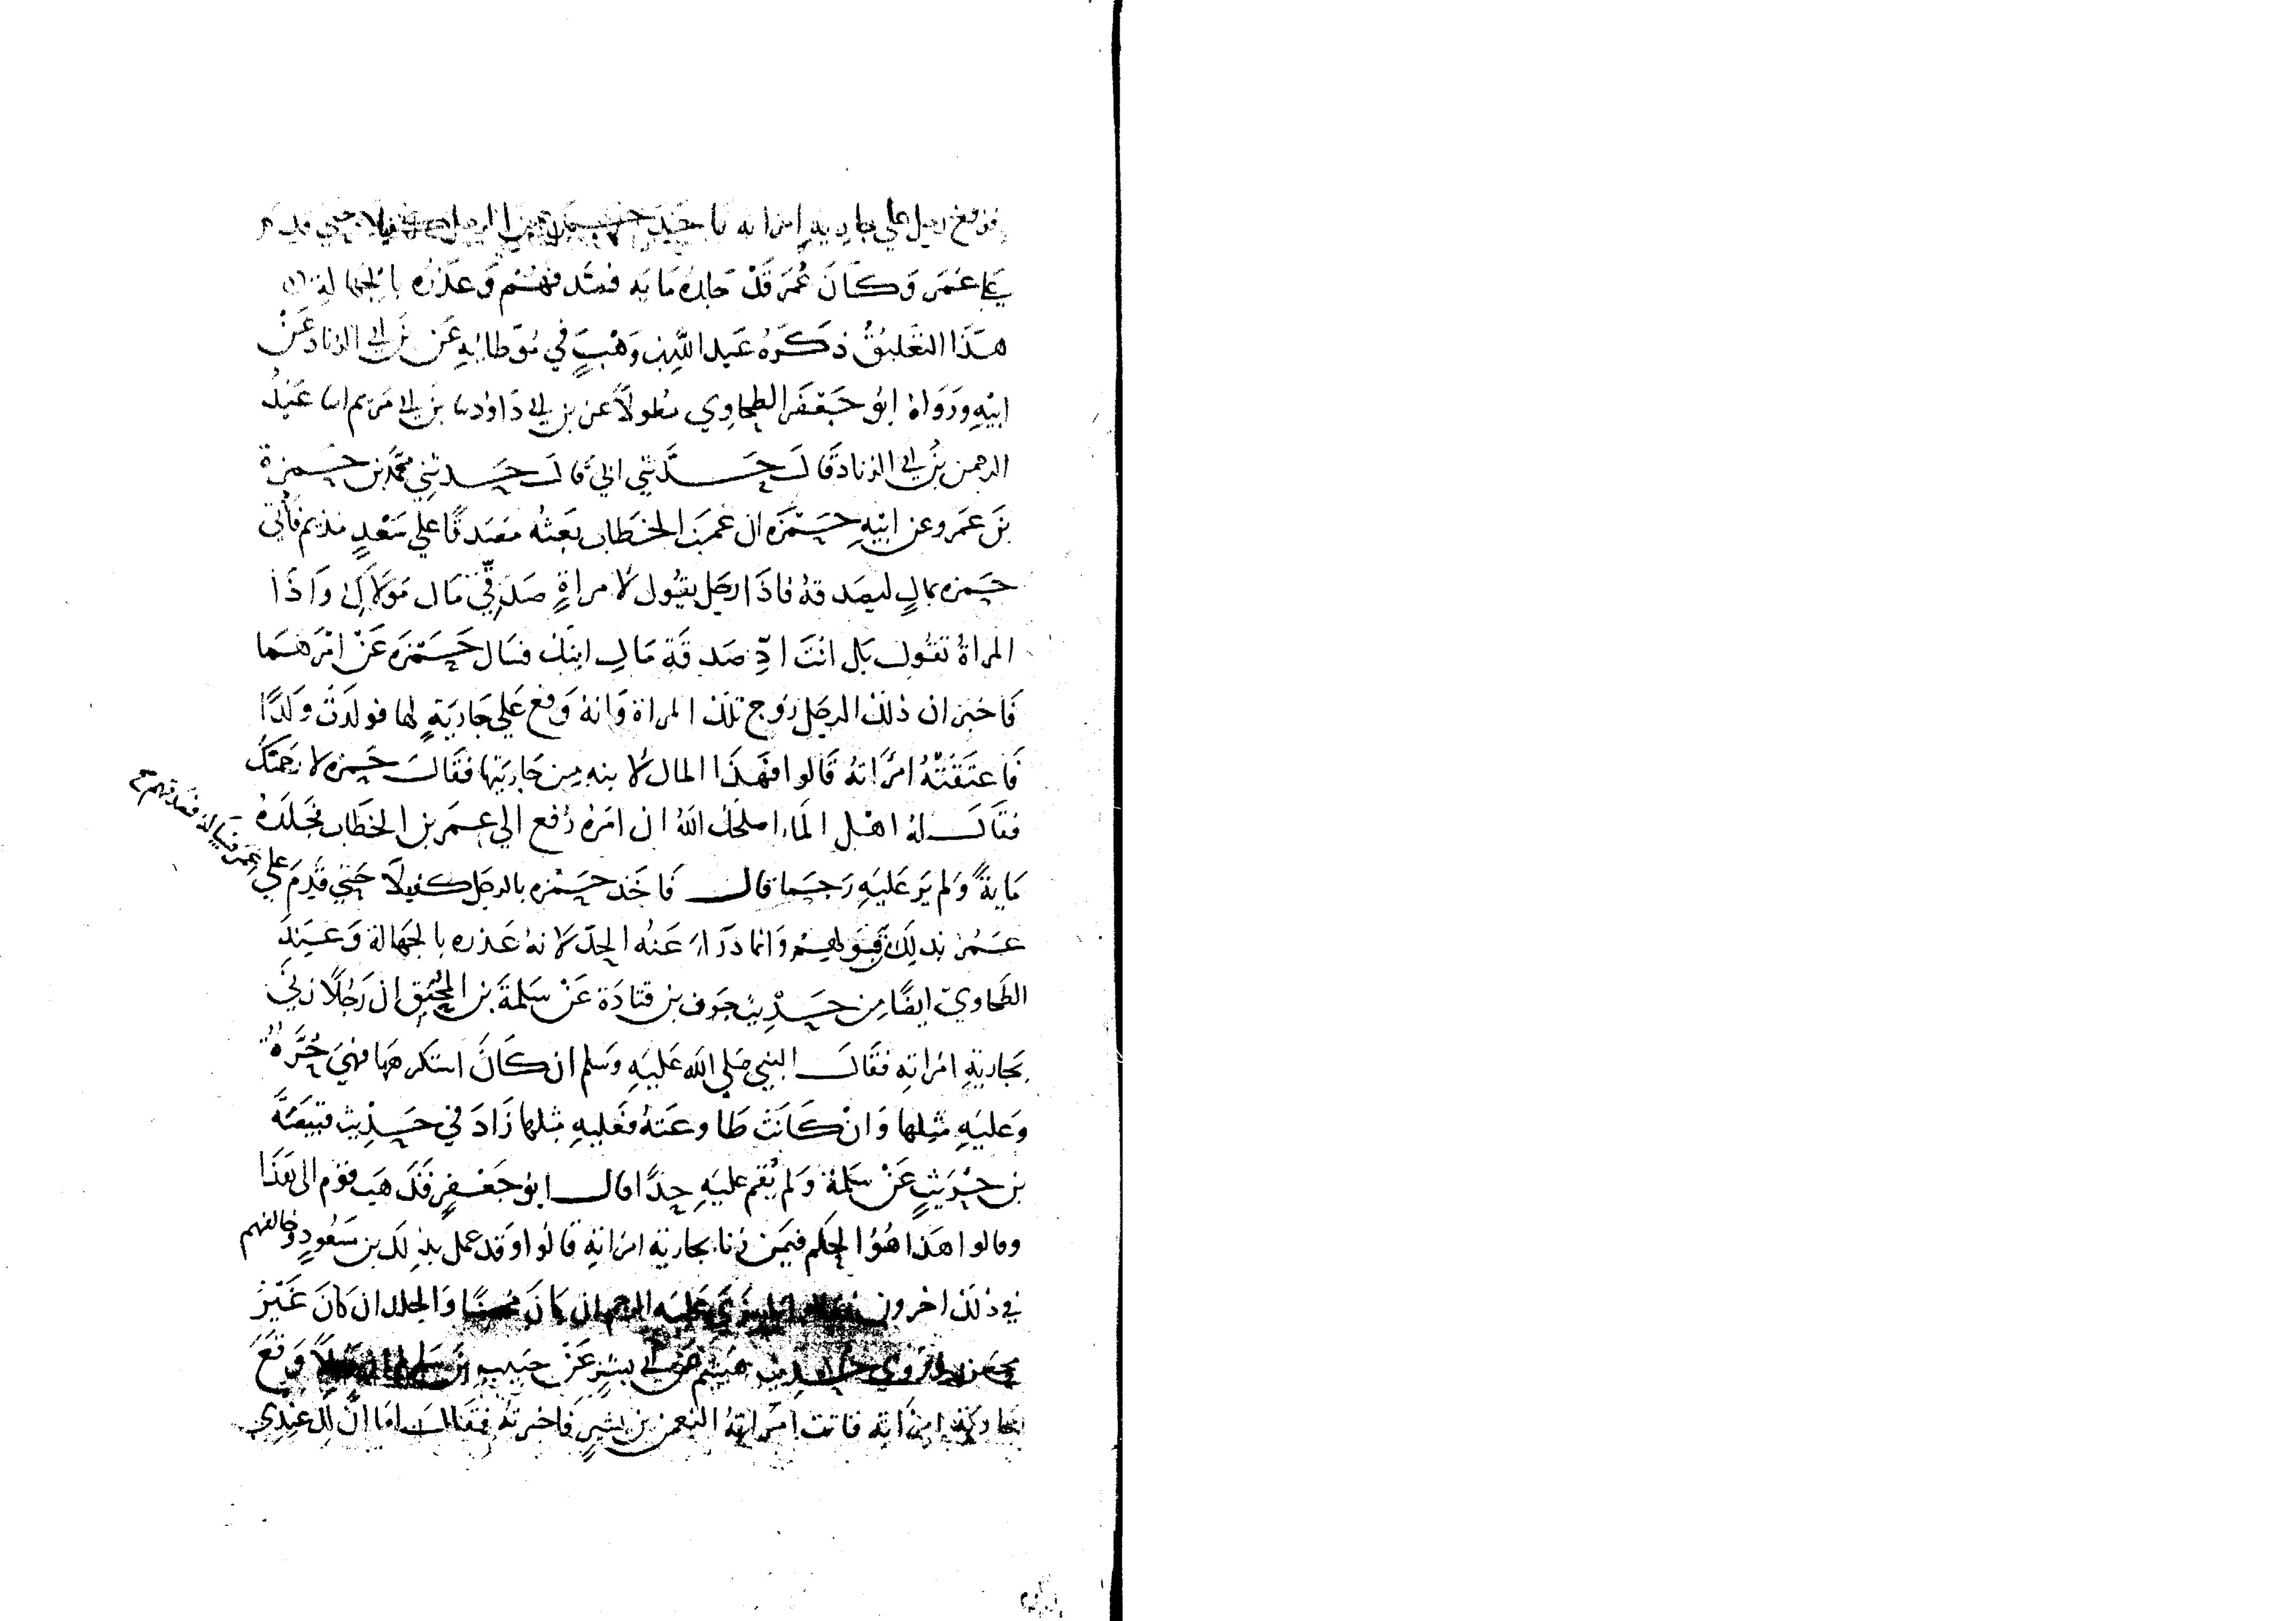 فوقع رجل علي جارية امراته فاخذ حمزة من الرجل كفيلا حتي قدم
علي عمر وكان عمر قد جلده ماية فصدقهم وعذره بالجهالة
هذا التعليق ذكره عبد الله بن وهب في موطائه عن بن ابي الزناد عن
ابيه ورواه ابو جعفر الطحاوي مطولا عن بن ابي داود سا بن ابي مريم اسا عبد
الرحمن بن ابي الزناد قال حدثني ابي قال حدثني محمد بن حمزة
بن عمرو عن ابيه حمزه ان عمر بن الخطاب بعثه مصدقا علي سعد هذيم فأتي
حمزه بمال ليصدقه فاذا رجل يقول لامراة صدقي مال مولاك واذا
المراة تقول بل انت ادّ صدقة مال ابنك فسال حمزه عن امرهما
فاخبر ان ذلك الرجل زوج تلك المراة وانه وقع علي جارية لها فولدت ولدا
فاعتقته امراته قالوا فهذا المال لابنه من جاريتها فقال حمزه لارجمنك
فقال له اهل الماء اصلحك الله ان امره رفع الي عمر بن الخطاب فجلده
ماية ولم ير عليه رجما قال فاخذ حمزه بالرجل كفيلا حتي قدم علي
عمر فساله فصدقهم
عمر بذلك من قولهم وانما درا عنه الحد لانه عذره بالجهالة وعند
الطحاوي ايضا من حديث جون بن قتادة عن سلمة بن المحبق ان رجلا زني
بجارية امراته فقال النبي صلي الله عليه وسلم ان كان استكرهها فهي حرة
وعليه مثلها وان كانت طاوعته فعليه مثلها زاد في حديث قبيصة
بن حريث عن سلمة ولم يقم عليه حدا قال ابو جعفر فذهب قوم الى هذا
وقالوا هذا هو الحكم فيمن زنا بجارية امراته قالوا وقد عمل بذلك بن مسعود وخالفهم
في ذلك اخرون عليه الرجم ان كان محصنا والجلد ان كان غير
محصن هشيم عن ابي بشر عن حبيب بن سالم ان رجلا وقع
بجارية امراته فاتت امراته النعمن بن بشير فاخبرته فقال اما ان لك عندي